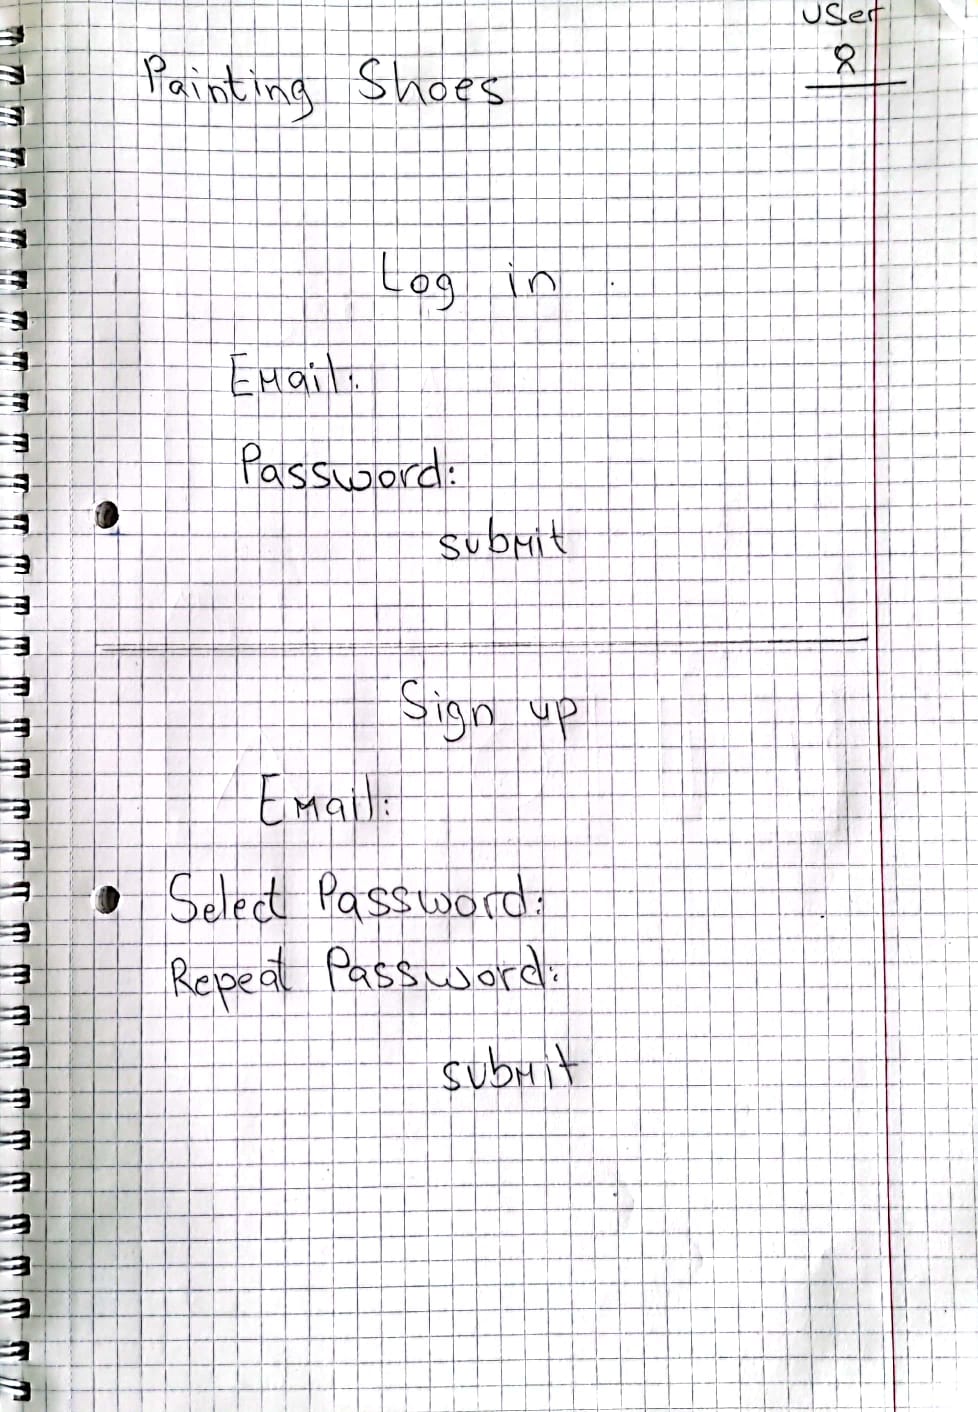 User
Painting Shoes
Log in
Email:
Password:
submit
Sign up
Email:
Select Password:
Repeat Password:
submit